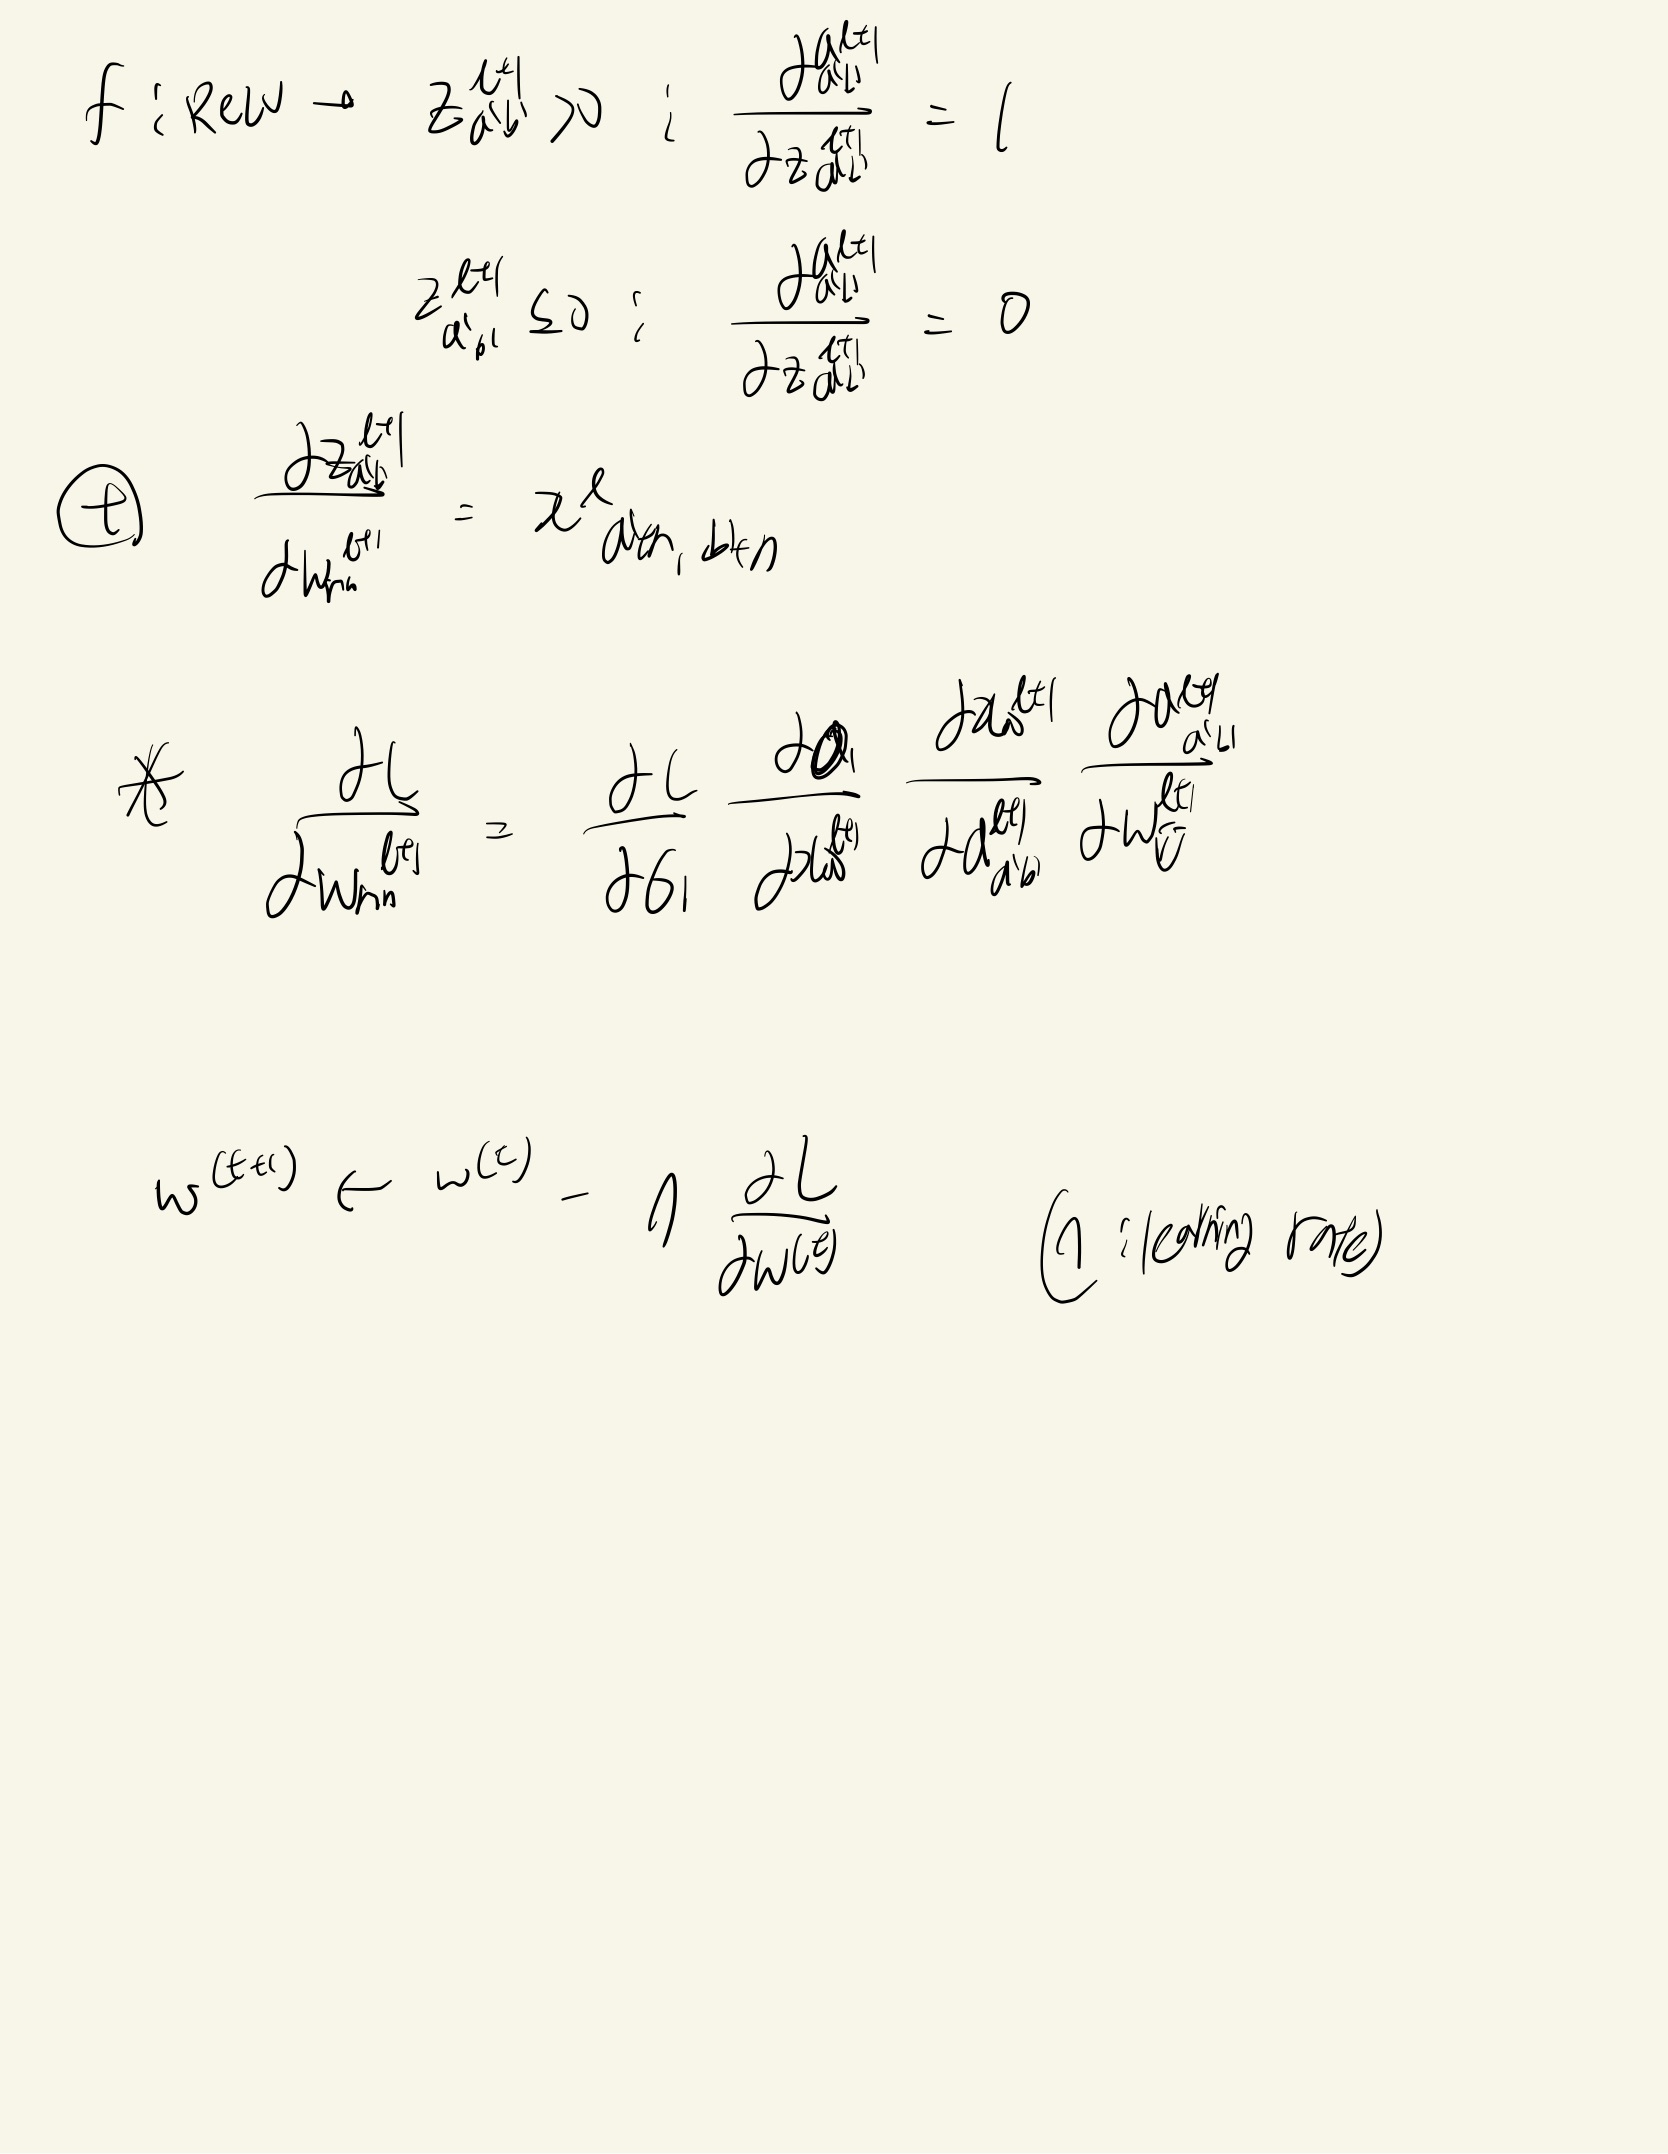 f : ReLU → z^{l+1}_{a'b'} > 0 : ∂a^{l+1}_{a'b'} / ∂z^{l+1}_{a'b'} = 1
z^{l+1}_{a'b'} ≤ 0 : ∂a^{l+1}_{a'b'} / ∂z^{l+1}_{a'b'} = 0
⊕ ∂z^{l+1}_{a'b'} / ∂w^{l+1}_{mn} = x^l_{a'+m, b'+n}
* ∂L / ∂w^{l+1}_{mn} = ∂L / ∂σ_1 ∂σ_1 / ∂x^{l+1} ∂x^{l+1} / ∂a^{l+1}_{a'b'} ∂a^{l+1}_{a'b'} / ∂w^{l+1}_{ij}
w^{(t+1)} ← w^{(t)} - η ∂L / ∂w^{(t)} (η : learning rate)